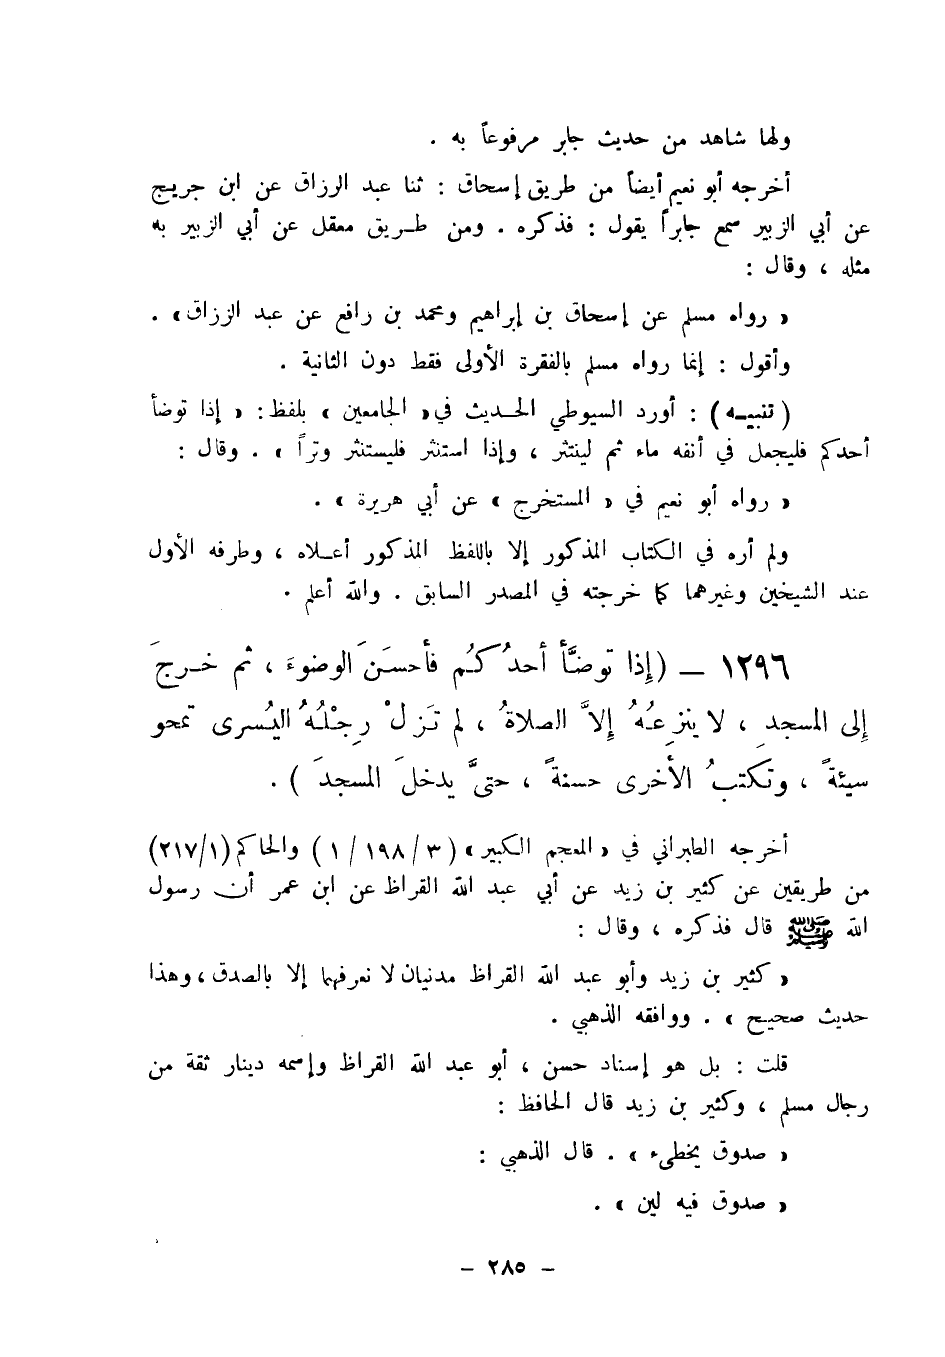 ولها شاهد من حديث جابر مرفوعاً به .
أخرجه أبو نعيم أيضاً من طريق إسحاق : ثنا عبد الرزاق عن ابن جريج
عن أبي الزبير سمع جابراً يقول : فذكره . ومن طريق معقل عن أبي الزبير به
مثله ، وقال :
« رواه مسلم عن إسحاق بن إبراهيم ومحمد بن رافع عن عبد الرزاق » .
وأقول : إنما رواه مسلم بالفقرة الأولى فقط دون الثانية .
( تنبيه ) : أورد السيوطي الحديث في « الجامعين » بلفظ : « إذا توضأ
أحدكم فليجعل في أنفه ماء ثم لينتثر ، وإذا استنثر فليستنثر وتراً » . وقال :
« رواه أبو نعيم في « المستخرج » عن أبي هريرة » .
ولم أره في الكتاب المذكور إلا باللفظ المذكور أعلاه ، وطرفه الأول
عند الشيخين وغيرهما كما خرجته في المصدر السابق . والله أعلم .
١٢٩٦ – (إذا توضَّأ أحدُكُم فأحسَنَ الوضوءَ ، ثم خرجَ
إلى المسجدِ ، لا ينزعُهُ إلاَّ الصلاةُ ، لم تَزلْ رِجْلُهُ اليُسرى تمحو
سيئةً ، وتكتبُ الأخرى حسنةً ، حتىَّ يدخلَ المسجدَ ) .
أخرجه الطبراني في « المعجم الكبير » ( ٣ / ١٩٨ / ١ ) والحاكم (١/ ٢١٧)
من طريقين عن كثير بن زيد عن أبي عبد الله القراظ عن ابن عمر أن رسول
الله ﷺ قال فذكره ، وقال :
« كثير بن زيد وأبو عبد الله القراظ مدنيان لا نعرفهما إلا بالصدق ، وهذا
حديث صحيح » . ووافقه الذهبي .
قلت : بل هو إسناد حسن ، أبو عبد الله القراظ وإسمه دينار ثقة من
رجال مسلم ، وكثير بن زيد قال الحافظ :
« صدوق يخطىء » . قال الذهبي :
« صدوق فيه لين » .
– ٢٨٥ –